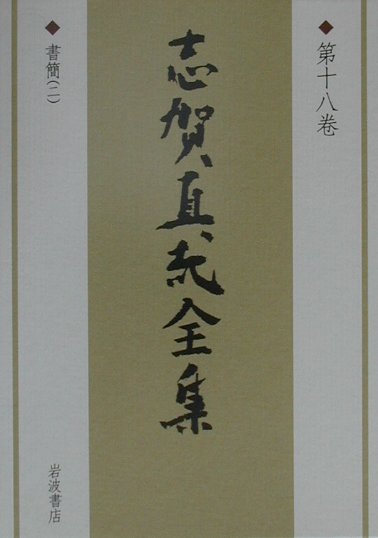 第十八巻
志賀直哉全集
書簡(二)
岩波書店